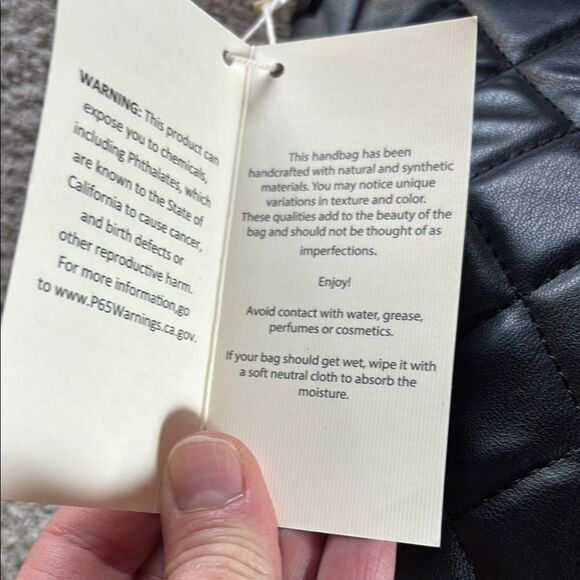 WARNING: This product can
expose you to chemicals,
including Phthalates, which
are known to the State of
California to cause cancer,
and birth defects or
other reproductive harm.
For more information,go
to www.P65Warnings.ca.gov.
This handbag has been
handcrafted with natural and synthetic
materials. You may notice unique
variations in texture and color.
These qualities add to the beauty of the
bag and should not be thought of as
imperfections.
Enjoy!
Avoid contact with water, grease,
perfumes or cosmetics.
If your bag should get wet, wipe it with
a soft neutral cloth to absorb the
moisture.